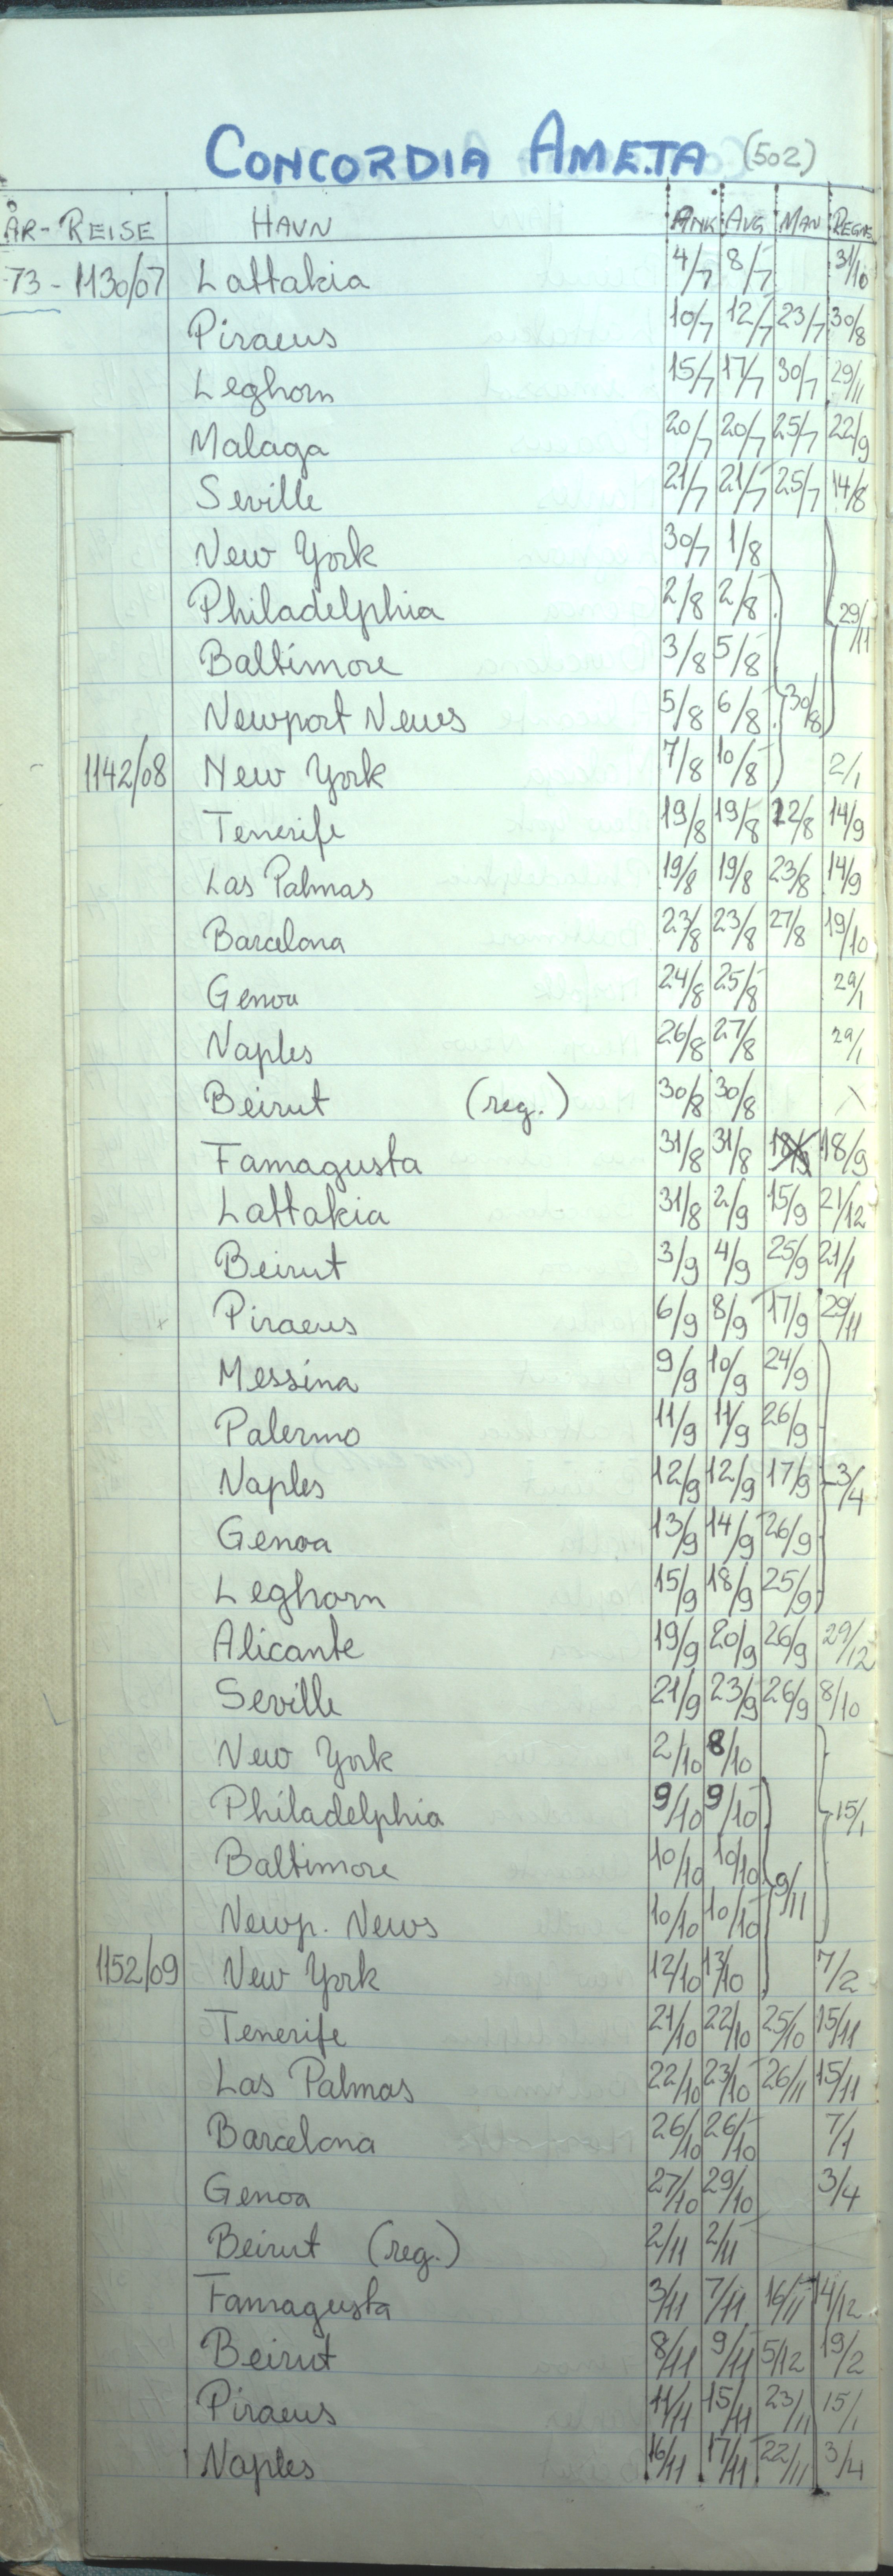 CONCORDIA AMETA (502)
ÅR- REISE HAVN ANK AVG MAN REGNS
73 - 1130/07 Lattakia 4/7 8/7 31/10
Piraeus 10/7 12/7 23/7 30/8
Leghorn 15/7 17/7 30/7 29/11
Malaga 20/7 20/7 25/7 22/9
Seville 21/7 21/7 25/7 14/8
New York 30/7 1/8
Philadelphia 2/8 2/8 29/11
Baltimore 3/8 5/8
Newport News 5/8 6/8 30/8
1142/08 New York 7/8 10/8 2/1
Tenerife 19/8 19/8 22/8 14/9
Las Palmas 19/8 19/8 23/8 14/9
Barcelona 23/8 23/8 27/8 19/10
Genoa 24/8 25/8 29/1
Naples 26/8 27/8 29/1
Beirut (reg.) 30/8 30/8
Famagusta 31/8 31/8 18/9 18/9
Lattakia 31/8 2/9 15/9 21/12
Beirut 3/9 4/9 25/9 21/1
Piraeus 6/9 8/9 17/9 29/11
Messina 9/9 10/9 24/9
Palermo 11/9 11/9 26/9
Naples 12/9 12/9 17/9 3/4
Genoa 13/9 14/9 26/9
Leghorn 15/9 18/9 25/9
Alicante 19/9 20/9 26/9 29/12
Seville 21/9 23/9 26/9 8/10
New York 2/10 8/10
Philadelphia 9/10 9/10 15/1
Baltimore 10/10 10/10 9/11
Newp. News 10/10 10/10
1152/09 New York 12/10 13/10 7/2
Tenerife 21/10 22/10 25/10 15/11
Las Palmas 22/10 23/10 26/11 15/11
Barcelona 26/10 26/10 7/1
Genoa 27/10 29/10 3/4
Beirut (reg.) 2/11 2/11
Famagusta 3/11 7/11 16/11 14/12
Beirut 8/11 9/11 5/12 19/2
Piraeus 11/11 15/11 23/11 15/1
Naples 16/11 17/11 22/11 3/4